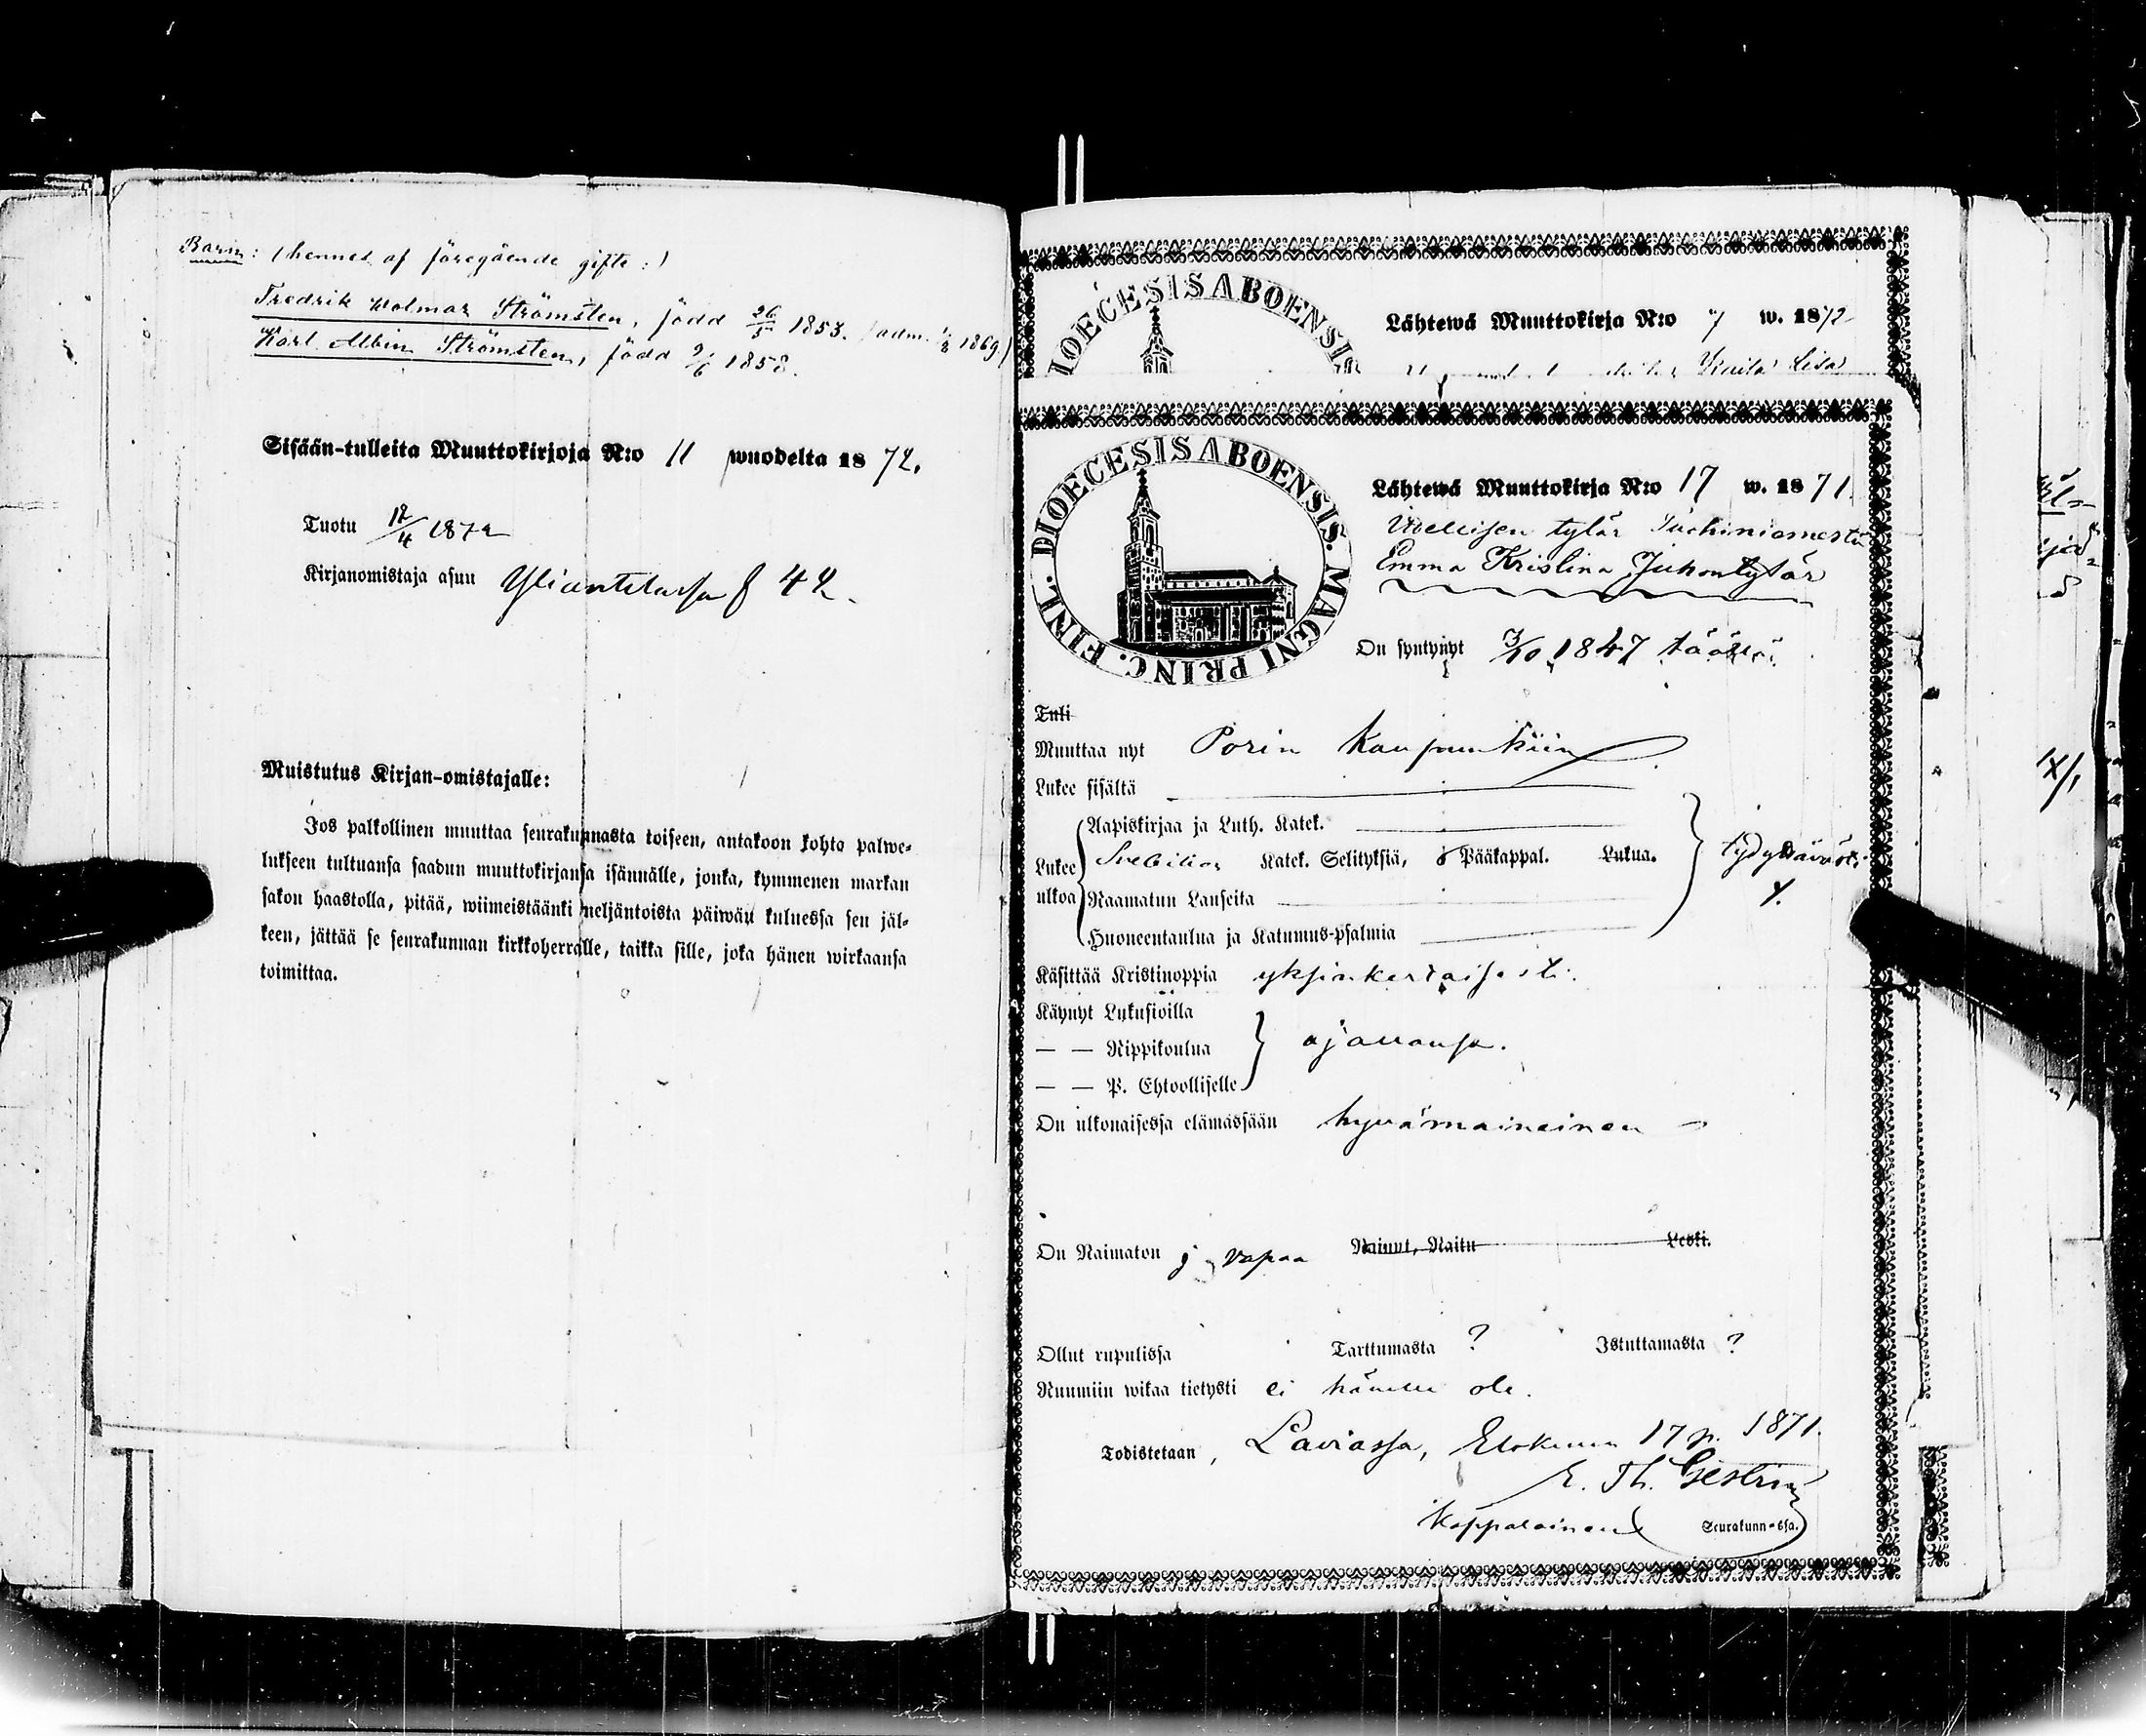 Barn: (hennes af föregående gifte:)
Fredrik Wolmar Strömsten, född 26/5 1853. (adm. 1869)
Karl Albin Strömsten, född 9/6 1858.
Sisään-tulleita Muuttokirjoja N:o 11 wuodelta 1872.
Tuotu 12/4 1872
Kirjanomistaja asuu f 42.
Muistutus Kirjan-omistajalle:
Jos palkollinen muuttaa seurakunnasta toiseen, antakoon kohta palwe-
lukseen tultuansa saadun muuttokirjansa isännälle, jonka, kymmenen markan
sakon haastolla, pitää, wiimeistäänki neljäntoista päiwän kuluessa sen jäl-
keen, jättää se seurakunnan kirkkoherralle, taikka sille, joka hänen wirkaansa
toimittaa.
DIOECESIS ABOENSIS
Lähtewä Muuttokirja N:o 7 w. 1872
Kaisa Lisa
DIOECESIS ABOENSIS. MAGNI PRINC. FINL.
Lähtewä Muuttokirja N:o 17 w. 1871.
Itsellisen tytär
Emma Kristina Juhontytär
On syntynyt 7/10 1847 täällä.
Tuli
Muuttaa nyt Porin Kaupunkiin
Lukee sisältä
Lukee ulkoa
Aapiskirjaa ja Luth. Katek.
Svebilion Katek. Selityksiä, 6 Pääkappal. Lukua.
Raamatun Lauseita
Huoneentaulua ja Katumus-psalmia
tydyttävästi
Käsittää Kristinoppia yksinkertaisesti.
Käynyt Lukusioilla
— — Rippikoulua
— — P. Ehtoolliselle
ajallansa.
On ulkonaisessa elämässään hyvämaineinen
On Naimaton j vapaa Nainut, Naitu Leski.
Ollut rupulissa Tarttumasta ? Istuttamasta ?
Ruumiin wikaa tietysti ei hänellä ole.
Todistetaan, Laviassa, Elokuun 17 p. 1871.
E. Th. Gestrin
Kappalainen Seurakunn-ssa.